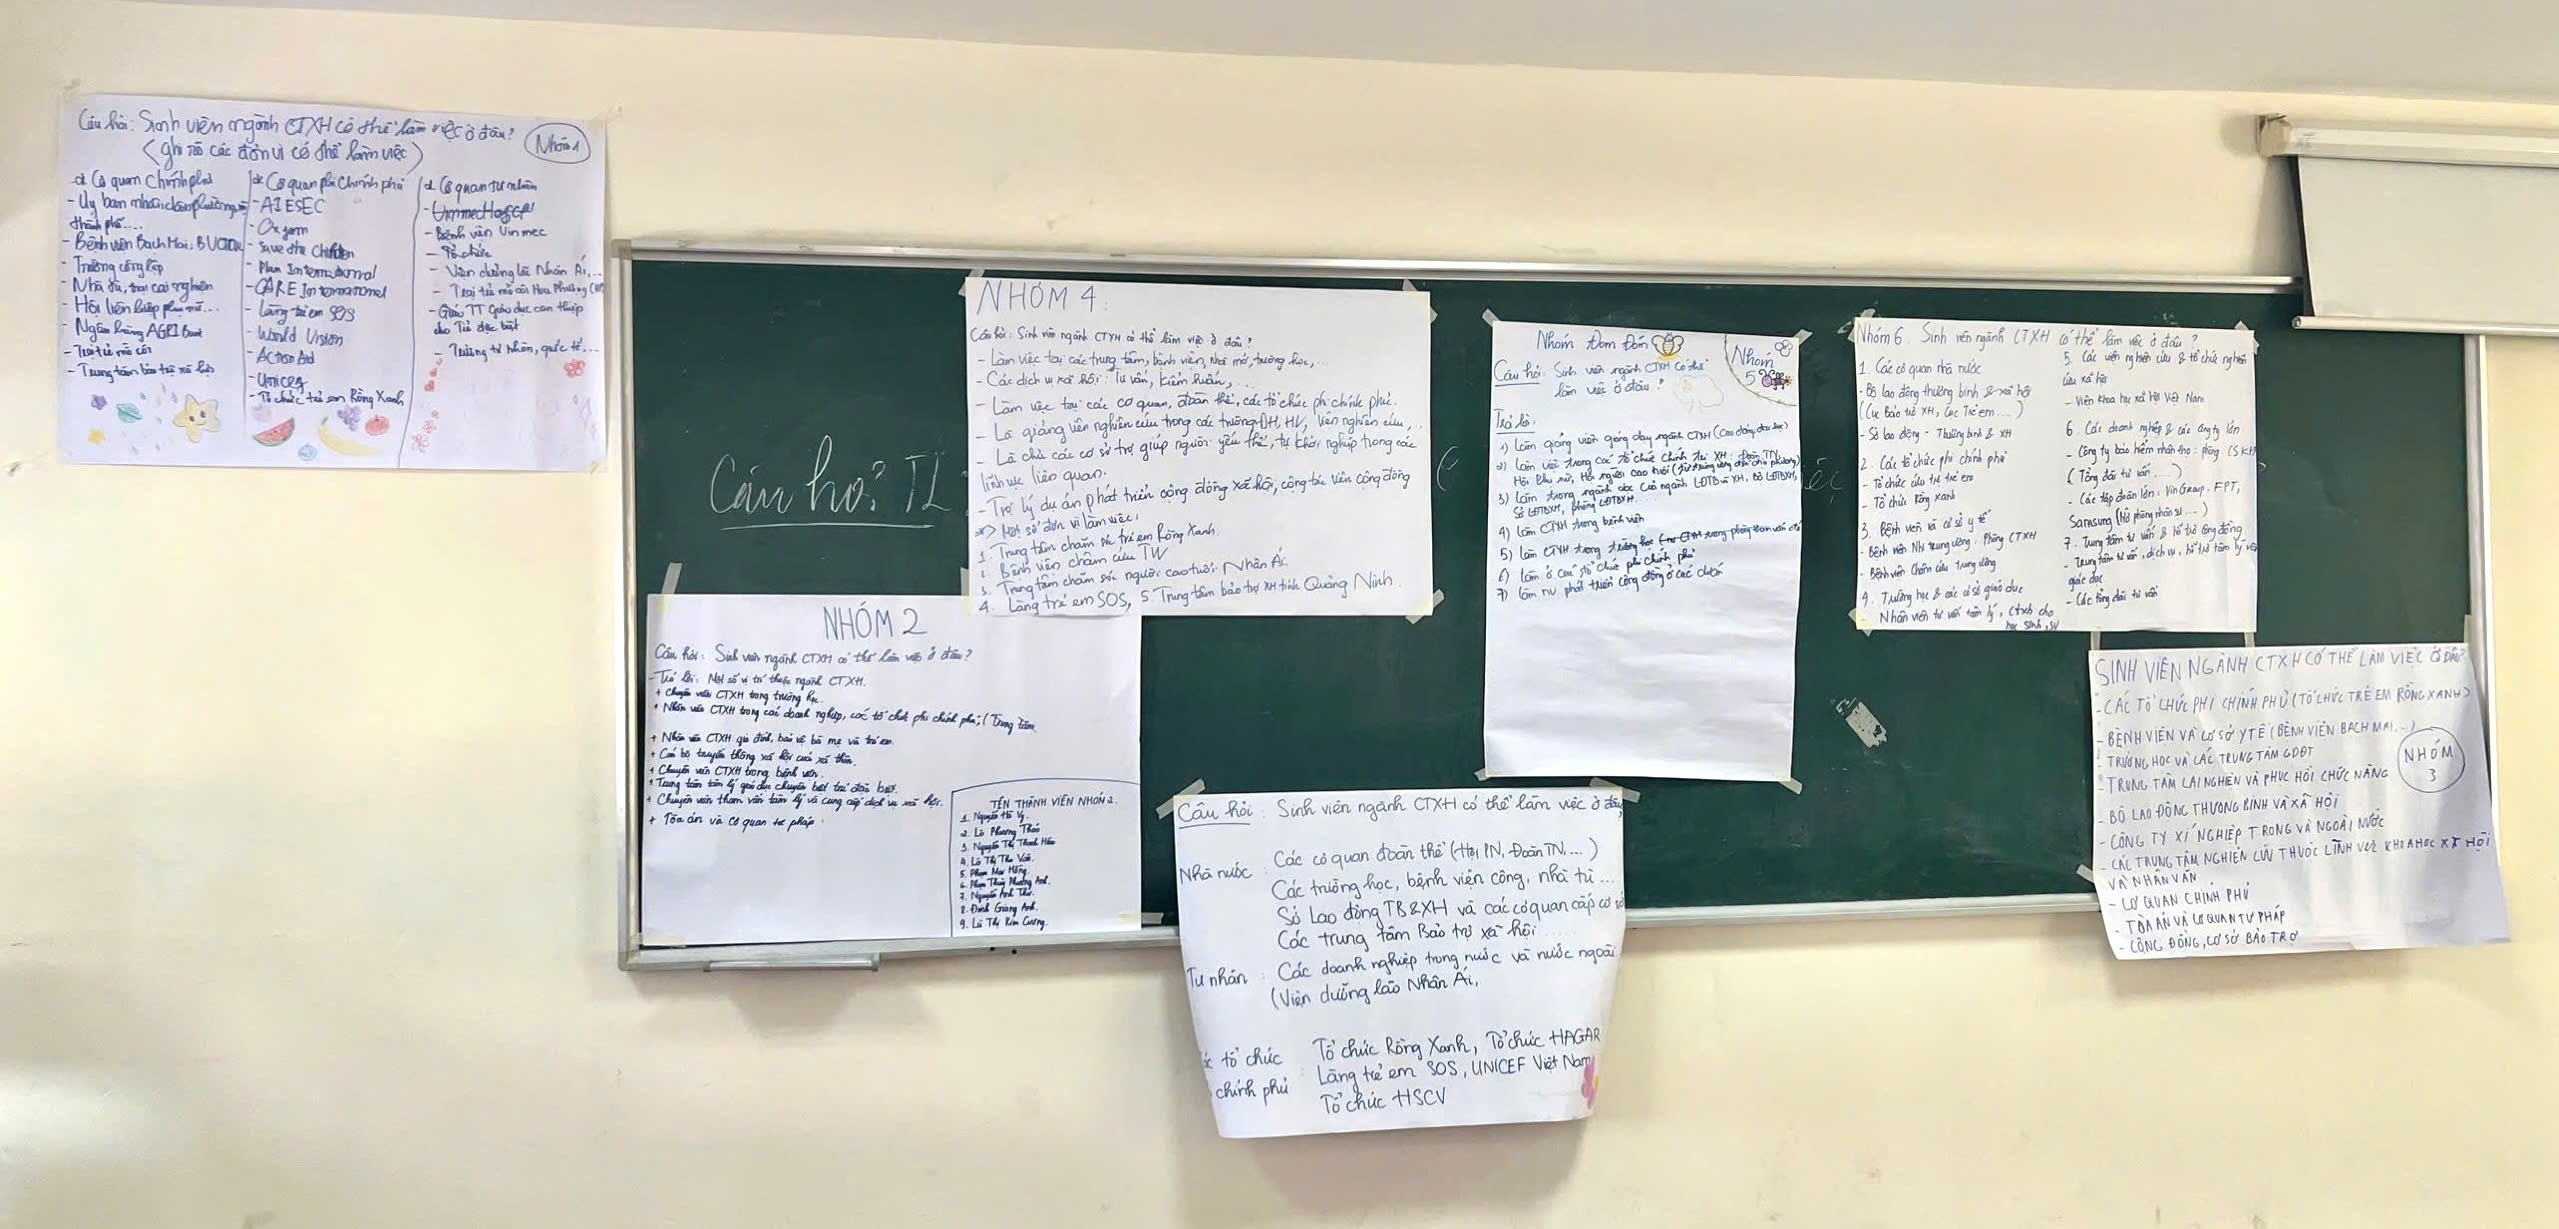 Câu hỏi: Sinh viên ngành CTXH có thể làm việc ở đâu?
(ghi rõ các đơn vị có thể làm việc)
Nhóm 1
Cơ quan Chính phủ
- Ủy ban nhân dân phường,
thành phố....
- Bệnh viện Bạch Mai,
- Trường công lập
- Nhà tù, trại cai nghiện
- Hội liên hiệp phụ nữ...
- Ngân hàng AGRI Bank
- Trại trẻ mồ côi
- Trung tâm bảo trợ xã hội
Cơ quan phi chính phủ
- AIESEC
- Oxfam
- Save the Children
- Plan International
- CARE International
- Làng trẻ em SOS
- World Vision
- Action Aid
- Unicef
- Tổ chức trẻ em Rồng Xanh
Cơ quan tư nhân
- Bệnh viện Vinmec
- Tổ chức
- Viện dưỡng lão Nhân Ái,...
- Trại trẻ mồ côi Hoa Phượng
- TT Giáo dục can thiệp
cho Trẻ đặc biệt
- Trường tư nhân, quốc tế...
Câu hỏi TL
NHÓM 4
Câu hỏi: Sinh viên ngành CTXH có thể làm việc ở đâu?
- Làm việc tại các trung tâm, bệnh viện, nhà mở, trường học,...
- Các dịch vụ xã hội: Tư vấn, kiểm huấn,...
- Làm việc tại các cơ quan, đoàn thể, các tổ chức phi chính phủ.
- Là giảng viên nghiên cứu trong các trường ĐH, HV, viện nghiên cứu,..
- Là chủ các cơ sở trợ giúp người yếu thế, tự khởi nghiệp trong các
lĩnh vực liên quan.
- Trợ lý dự án phát triển cộng đồng xã hội, cộng tác viên cộng đồng
=> Một số đơn vị làm việc:
1. Trung tâm chăm sóc trẻ em Rồng Xanh.
2. Bệnh viện châm cứu TW
3. Trung tâm chăm sóc người cao tuổi: Nhân Ái.
4. Làng trẻ em SOS, 5. Trung tâm bảo trợ XH tỉnh Quảng Ninh.
Nhóm Đom Đóm
Nhóm
5
Câu hỏi: Sinh viên ngành CTXH có thể
làm việc ở đâu?
Trả lời:
1) Làm giảng viên giảng dạy ngành CTXH (Cao đẳng, đại học)
2) Làm việc trong các tổ chức chính trị XH: Đoàn TN,
Hội Phụ nữ, Hội người cao tuổi (từ trung ương đến địa phương)
3) Làm trong ngành dọc của ngành LĐTB và XH, Bộ LĐTBXH,
Sở LĐTBXH, phòng LĐTBXH...
4) Làm CTXH trong bệnh viện
5) Làm CTXH trong trường học
6) Làm ở các tổ chức phi chính phủ
7) Làm NV phát triển cộng đồng ở các dự án
Nhóm 6. Sinh viên ngành CTXH có thể làm việc ở đâu?
1. Các cơ quan nhà nước
- Bộ lao động thương binh & xã hội
(Cục Bảo trợ XH, Cục Trẻ em...)
- Sở lao động - Thương binh & XH
2. Các tổ chức phi chính phủ
- Tổ chức cứu trợ trẻ em
- Tổ chức Rồng xanh
3. Bệnh viện và cơ sở y tế
- Bệnh viện Nhi trung ương: Phòng CTXH
- Bệnh viện Châm cứu Trung ương
4. Trường học & các cơ sở giáo dục
- Nhân viên tư vấn tâm lý, CTXH cho
học sinh, SV
5. Các viện nghiên cứu & tổ chức nghiên
cứu xã hội
- Viện khoa học xã hội Việt Nam
6. Các doanh nghiệp & các công ty lớn
- Công ty bảo hiểm nhân thọ: phòng CSKH
(Tổng đài tư vấn....)
- Các tập đoàn lớn: VinGroup, FPT,
Samsung (Bộ phòng nhân sự....)
7. Trung tâm tư vấn & hỗ trợ cộng đồng
- Trung tâm tư vấn, dịch vụ, hỗ trợ tâm lý
giáo dục
- Các tổng đài tư vấn
NHÓM 2
Câu hỏi: Sinh viên ngành CTXH có thể làm việc ở đâu?
- Trả lời: Một số vị trí thuộc ngành CTXH.
+ Chuyên viên CTXH trong trường học.
+ Nhân viên CTXH trong các doanh nghiệp, các tổ chức phi chính phủ; (Trung tâm
+ Nhân viên CTXH gia đình, bảo vệ bà mẹ và trẻ em.
+ Cán bộ truyền thông xã hội
+ Chuyên viên CTXH trong bệnh viện.
+ Trung tâm tâm lý giáo dục chuyên biệt trẻ đặc biệt.
+ Chuyên viên tham vấn tâm lý và cung cấp dịch vụ xã hội.
+ Tòa án và cơ quan tư pháp.
TÊN THÀNH VIÊN NHÓM 2.
1. Nguyễn Hà Vy.
2. Lò Phương Thảo
3. Nguyễn Thị Thanh Hiền
4. Lò Thị Thu Vân.
5. Phạm Mai Hồng.
6. Phạm Thùy Phương Anh.
7. Nguyễn Anh Thư.
8. Đinh Giang Anh.
9. Lù Thị Kim Cương.
Câu hỏi: Sinh viên ngành CTXH có thể làm việc ở đâu?
Nhà nước: Các cơ quan đoàn thể (Hội PN, Đoàn TN,...)
Các trường học, bệnh viện công, nhà tù...
Sở Lao động TB&XH và các cơ quan cấp cơ sở
Các trung tâm Bảo trợ xã hội
Tư nhân: Các doanh nghiệp trong nước và nước ngoài
(Viện dưỡng lão Nhân Ái,
tổ chức Tổ chức Rồng Xanh, Tổ chức HAGAR
chính phủ: Làng trẻ em SOS, UNICEF Việt Nam
Tổ chức HSCV
SINH VIÊN NGÀNH CTXH CÓ THỂ LÀM VIỆC Ở ĐÂU?
- CÁC TỔ CHỨC PHI CHÍNH PHỦ (TỔ CHỨC TRẺ EM RỒNG XANH)
- BỆNH VIỆN VÀ CƠ SỞ Y TẾ (BỆNH VIỆN BẠCH MAI,...)
- TRƯỜNG HỌC VÀ CÁC TRUNG TÂM GDĐT
- TRUNG TÂM CAI NGHIỆN VÀ PHỤC HỒI CHỨC NĂNG
- BỘ LAO ĐỘNG THƯƠNG BINH VÀ XÃ HỘI
- CÔNG TY XÍ NGHIỆP TRONG VÀ NGOÀI NƯỚC
- CÁC TRUNG TÂM NGHIÊN CỨU THUỘC LĨNH VỰC KHOA HỌC XÃ HỘI
VÀ NHÂN VĂN
- CƠ QUAN CHÍNH PHỦ
- TÒA ÁN VÀ CƠ QUAN TƯ PHÁP
- CỘNG ĐỒNG, CƠ SỞ BẢO TRỢ
NHÓM
3